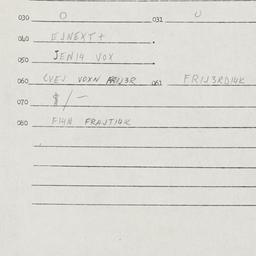 030 O 031 U
040 EJNEXT+
050 JEN14 VOX
060 CVEJ VOXN FRIJ3R 061 FRIJ3RD14K
070 $/-
080 F14N FRAJT14K